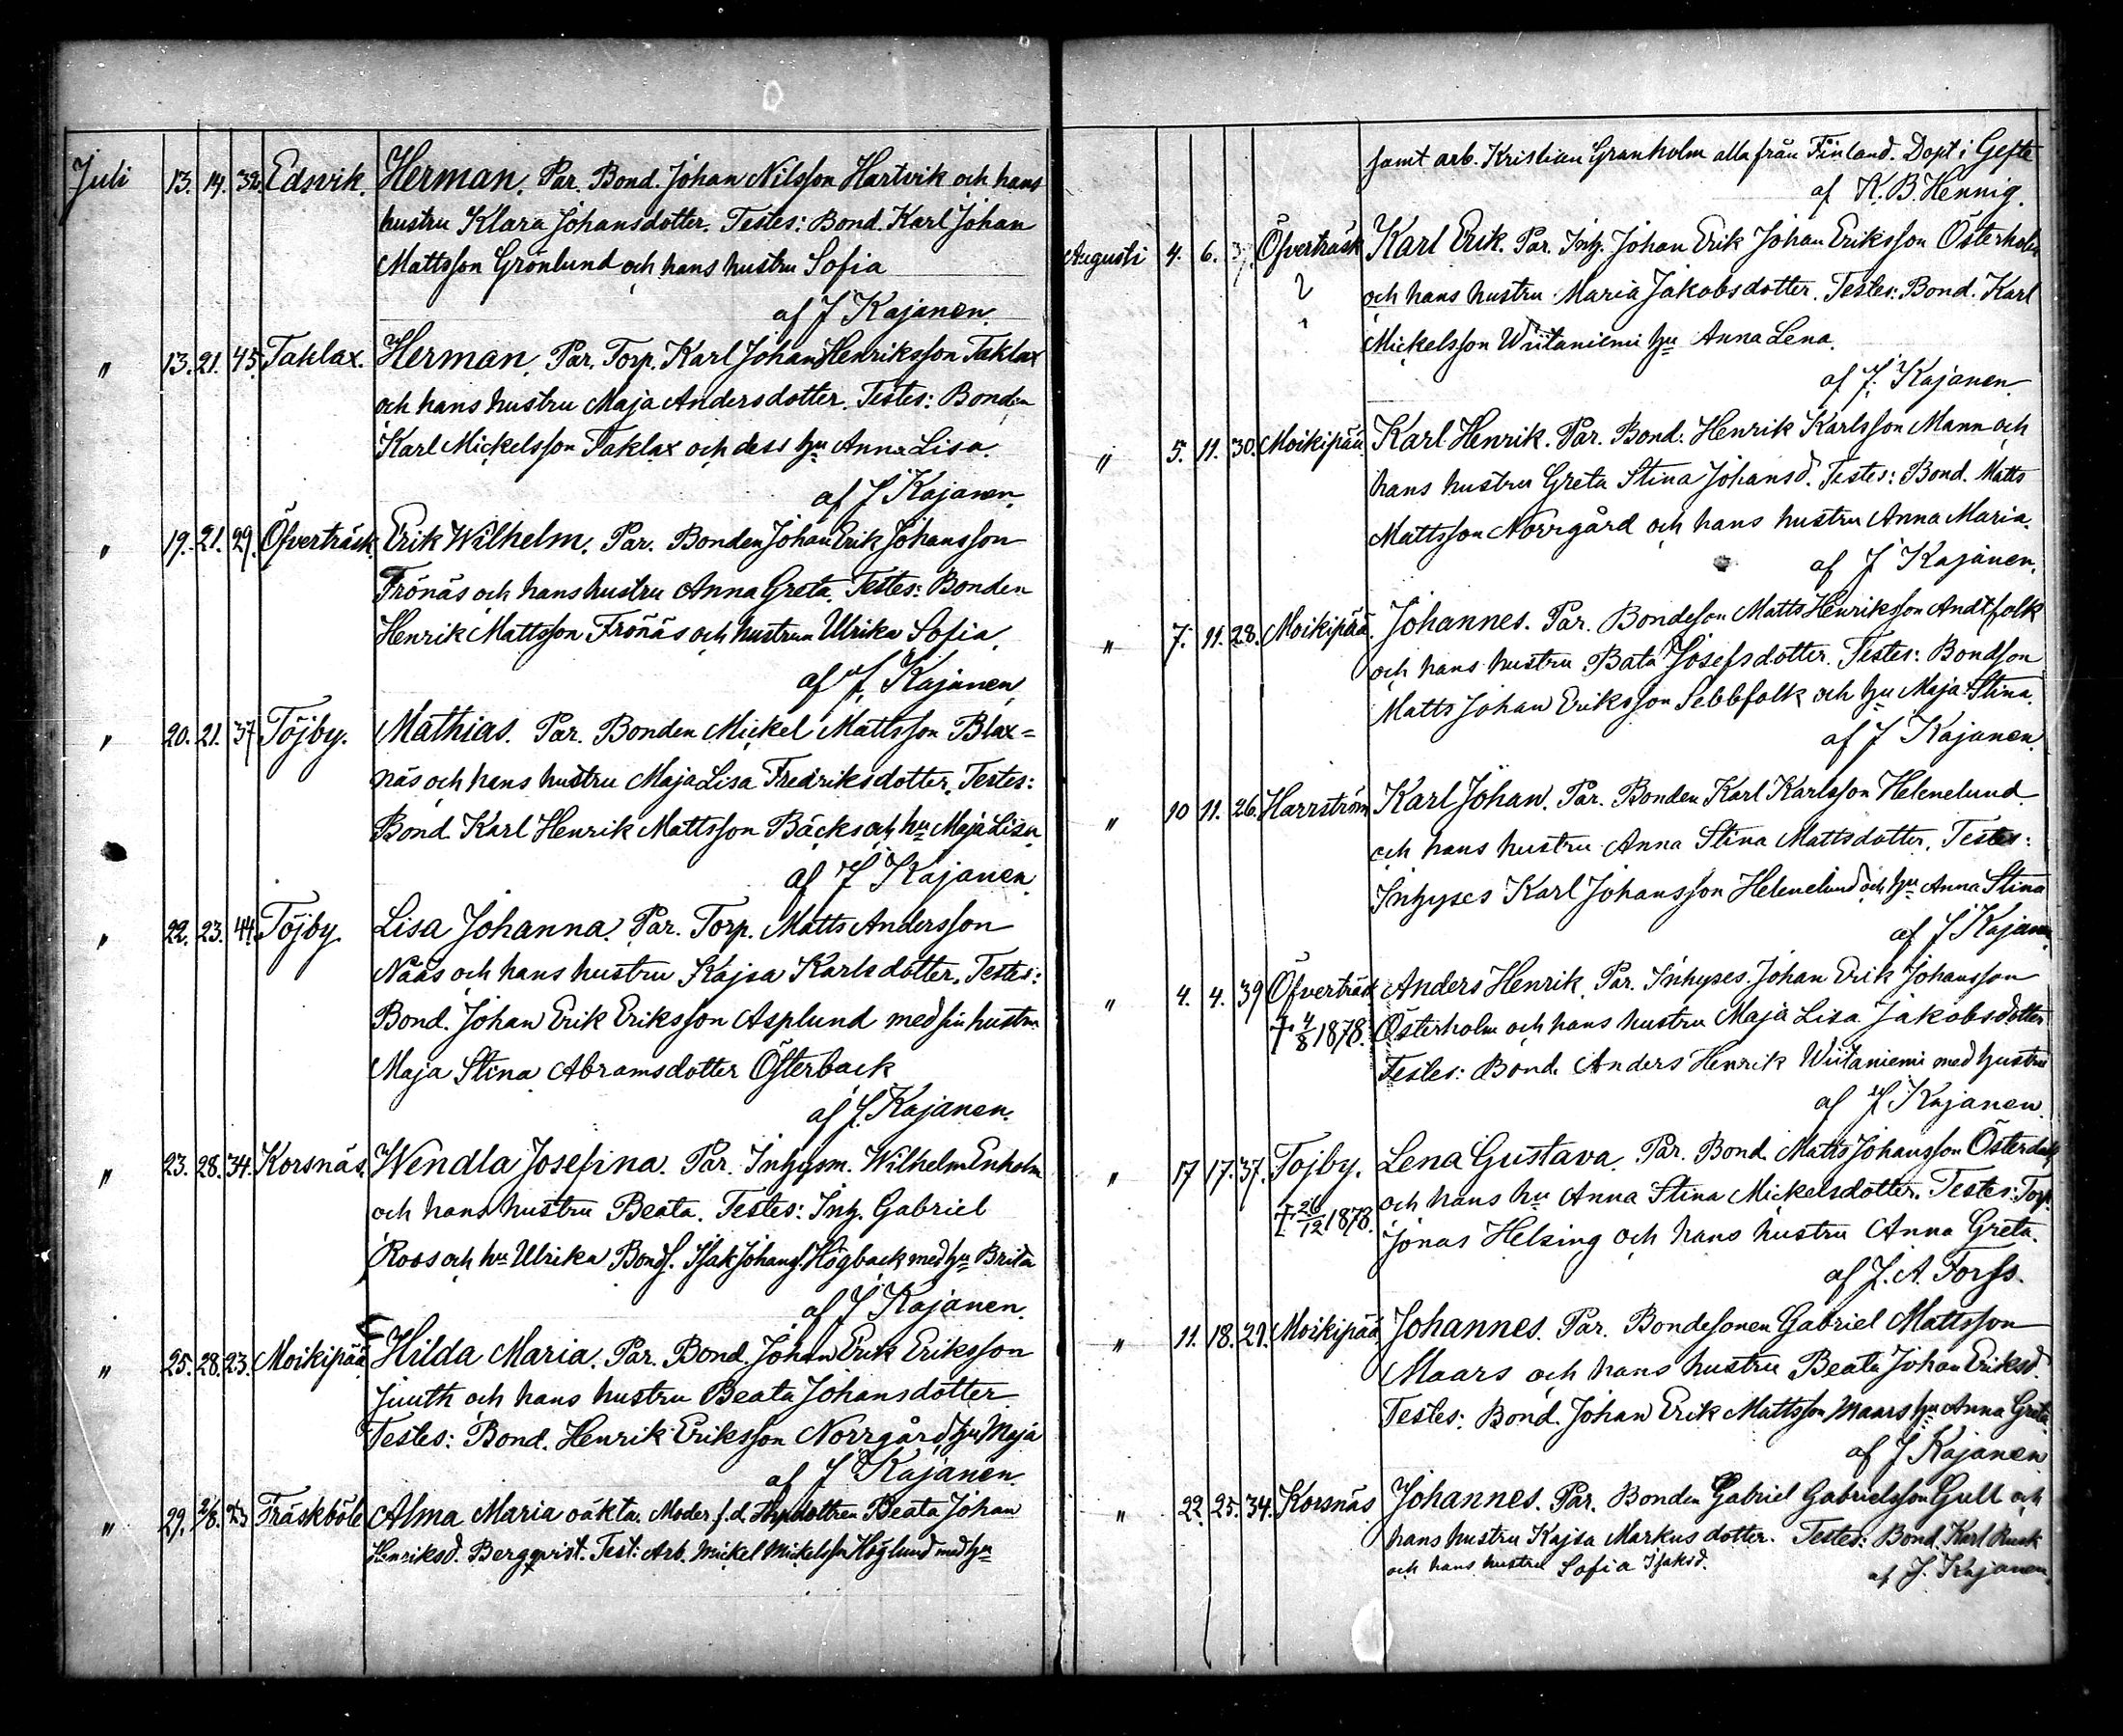 Juli 13. 14. 32. Edsvik. Herman. Par. Bond. Johan Nilsson Hartvik och hans
hustru Klara Johansdotter. Testes: Bond. Karl Johan
Mattsson Grönlund och hans hustru Sofia
af J Kajanen.
" 13. 21. 45. Taklax. Herman. Par. Torp. Karl Johan Henriksson Taklax
och hans hustru Maja Andersdotter. Testes: Bonden
Karl Mickelsson Taklax och dess hu Anna Lisa.
af J Kajanen.
" 19. 21. 29. Öfverträsk. Erik Wilhelm. Par. Bonden Johan Erik Johansson
Frönäs och hans hustru Anna Greta. Testes: Bonden
Henrik Mattsson Frönäs och hustrun Ulrika Sofia.
af J. Kajanen.
" 20. 21. 37 Töjby. Mathias. Par. Bonden Mickel Mattsson Blax=
näs och hans hustru Maja Lisa Fredriksdotter. Testes:
Bond. Karl Henrik Mattsson Bäcks och hu Maja Lisa
af J Kajanen.
" 22. 23. 44. Töjby. Lisa Johanna. Par. Torp. Matts Andersson
Nääs och hans hustru Kajsa Karlsdotter. Testes:
Bond. Johan Erik Eriksson Asplund med sin hustru
Maja Stina Abramsdotter Österback
af J. Kajanen.
" 23. 28. 34. Korsnäs. Wendla Josefina. Par. Inhysm. Wilhelm Enholm
och hans hustru Beata. Testes: Inh. Gabriel
Roos och hu Ulrika Bonds. Isak Johans. Högback med hu Brita
af J Kajanen.
" 25. 28. 23. Moikipää. Hilda Maria. Par. Bond. Johan Erik Eriksson
Juuth och hans hustru Beata Johansdotter
Testes: Bond. Henrik Eriksson Norrgård hu Maja
af J Kajanen.
" 29. 2/8. 23 Träskböle Alma Maria oäkta. Moder f.d. Torpdottren Beata Johan
Henriksd. Bergqvist. Test: Arb. Mickel Mickelsson Höglund med hu
samt arb. Kristian Granholm alla från Finland. Döpt i Gefle
af K. B. Hennig.
Augusti 4. 6. Öfverträsk Karl Erik. Par. Inh. Johan Erik Johan Eriksson Österholm
och hans hustru Maria Jakobsdotter. Testes: Bond. Karl
Mickelsson Wiitaniemi hu Anna Lena.
af J. Kajanen.
" 5. 11. 30. Moikipää Karl Henrik. Par. Bond. Henrik Karlsson Mann och
hans hustru Greta Stina Johansd. Testes: Bond. Matts
Mattsson Norrgård och hans hustru Anna Maria.
af J Kajanen.
" 7. 11. 28. Moikipää. Johannes. Par. Bondeson Matts Henriksson Andtfolk
och hans hustru Bata Josefsdotter. Testes: Bondson
Matts Johan Eriksson Sebbfolk och hu Maja Stina.
af J Kajanen.
" 10 11. 26. Harrström Karl Johan. Par. Bonden Karl Karlsson Helenelund
och hans hustru Anna Stina Mattsdotter. Testes:
Inhyses Karl Johansson Helenelund och hu Anna Stina
af J Kajanen.
" 4. 4. 39 Öfverträsk Anders Henrik. Par. Inhyses Johan Erik Johansson
† 4/8 1878. Österholm och hans hustru Maja Lisa Jakobsdotter
Testes: Bond. Anders Henrik Wiitaniemi med hustru
af J Kajanen.
" 17 17. 37. Töjby. Lena Gustava. Par. Bond. Matts Johansson Österdahl
och hans hu Anna Stina Mickelsdotter. Testes: Torp.
† 26/12 1878. Jonas Helsing och hans hustru Anna Greta.
af J. A. Forss.
" 11. 18. 29. Moikipää Johannes. Par. Bondesonen Gabriel Mattsson
Maars och hans hustru Beata Johan Eriksd.
Testes: Bond. Johan Erik Mattsson Maars hu Anna Greta
af J Kajanen
" 22. 25. 34. Korsnäs Johannes. Par. Bonden Gabriel Gabrielsson Gull och
hans hustru Kajsa Markusdotter. Testes: Bond. Karl Rusk
och hans hustru Sofia Isaksd.
af J. Kajanen.